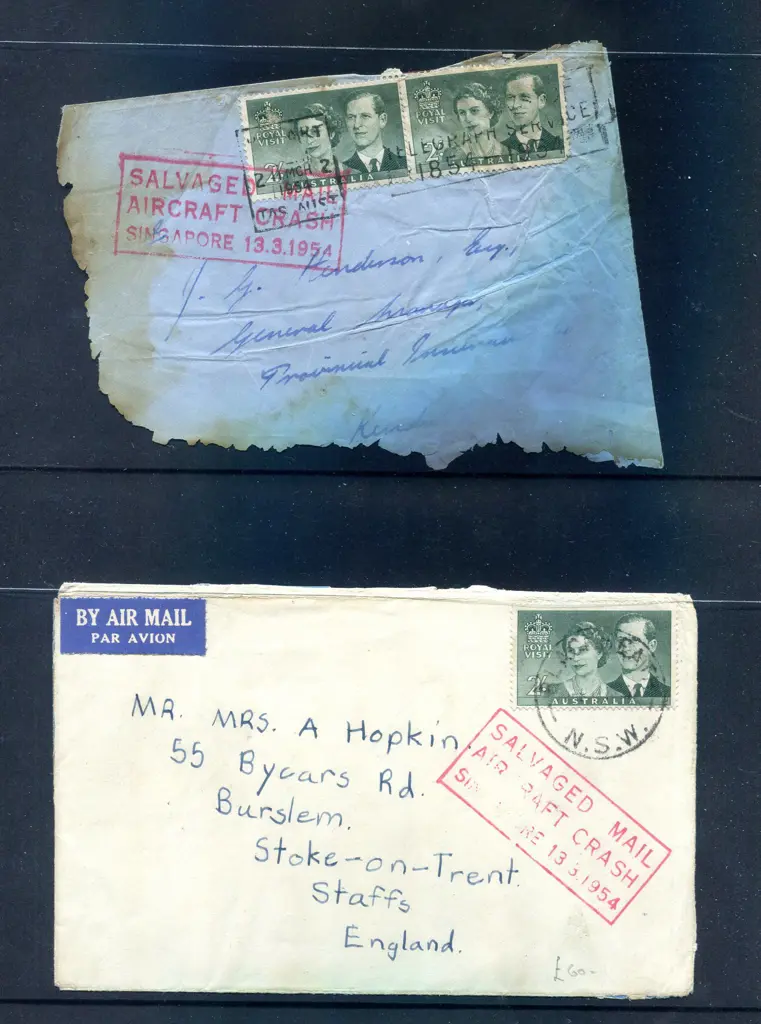 ROYAL VISIT
2/-
AUSTRALIA
ROYAL VISIT
2/-
TELEGRAPH SERVICE
1854
1954
TAS AUST
SALVAGED MAIL
AIRCRAFT CRASH
SINGAPORE 13.3.1954
J. G. Henderson, Esq.,
General Manager,
Provincial
BY AIR MAIL
PAR AVION
ROYAL VISIT
2/-
AUSTRALIA
N.S.W.
MR. MRS. A Hopkin.
55 Bycars Rd.
Burslem.
Stoke-on-Trent.
Staffs
England.
SALVAGED MAIL
AIR RAFT CRASH
SIN RE 13.3.1954
£60-